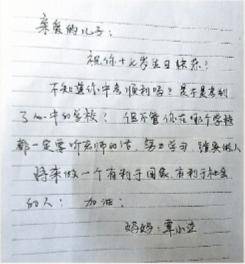 亲爱的儿子：
祝你十六岁生日快乐！
不知道你中考顺利吗？是不是考到
了心中的学校？但不管你在哪个学校
都一定要听老师的话，努力学习，做人
将来做一个有利于国家、有利于社会
的人；加油；
妈妈：覃小立